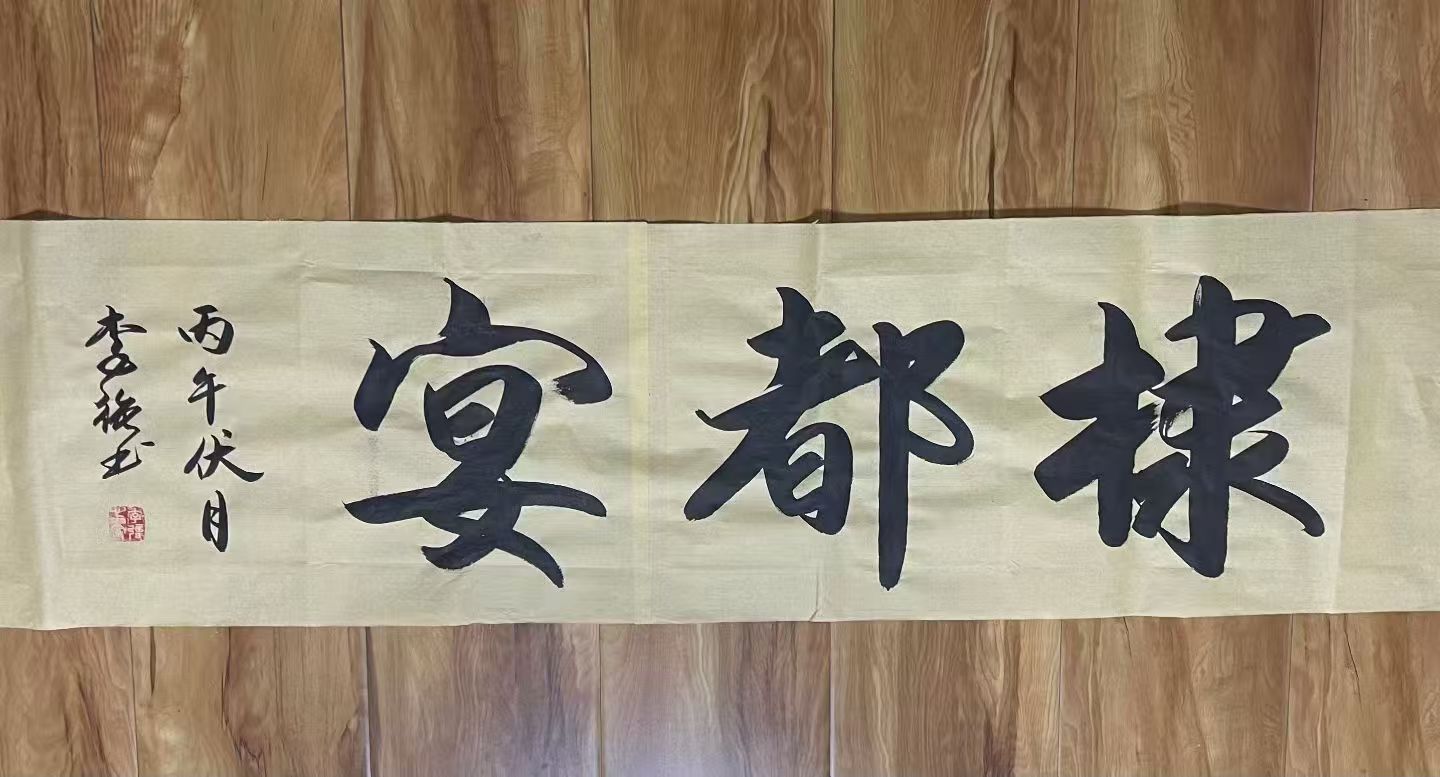 棣都宴
丙午伏月
李强书